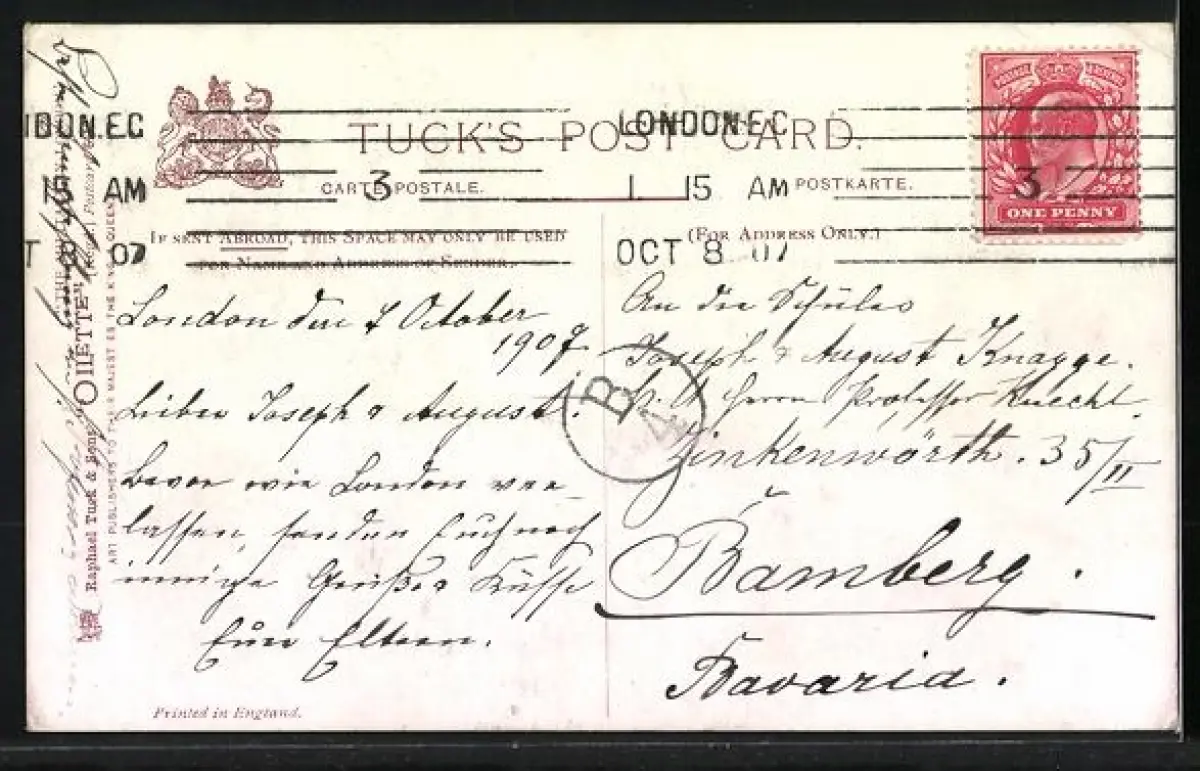 TUCK'S POST CARD.
CARTE POSTALE.
POSTKARTE.
IF SENT ABROAD, THIS SPACE MAY ONLY BE USED
FOR NAME AND ADDRESS OF SENDER.
(FOR ADDRESS ONLY.)
LONDON.E.C
3
1 15 AM
OCT 8 07
DON.E.C
15 AM
T 8 07
3
ONE PENNY
London den 7 October
1907.
Lieber Joseph & August!
Bevor wir London ver-
lassen, senden Euch noch
innige Grüße & Küsse
Eure Eltern.
An die Schüler
Joseph & August Knagge.
Herrn Professor Knecht.
Zinkenwörth. 35/II
Bamberg.
Bavaria.
B
4
Raphael Tuck & Sons' "OILETTE"
ART PUBLISHERS TO THEIR MAJESTIES THE KING QUEEN
Printed in England.